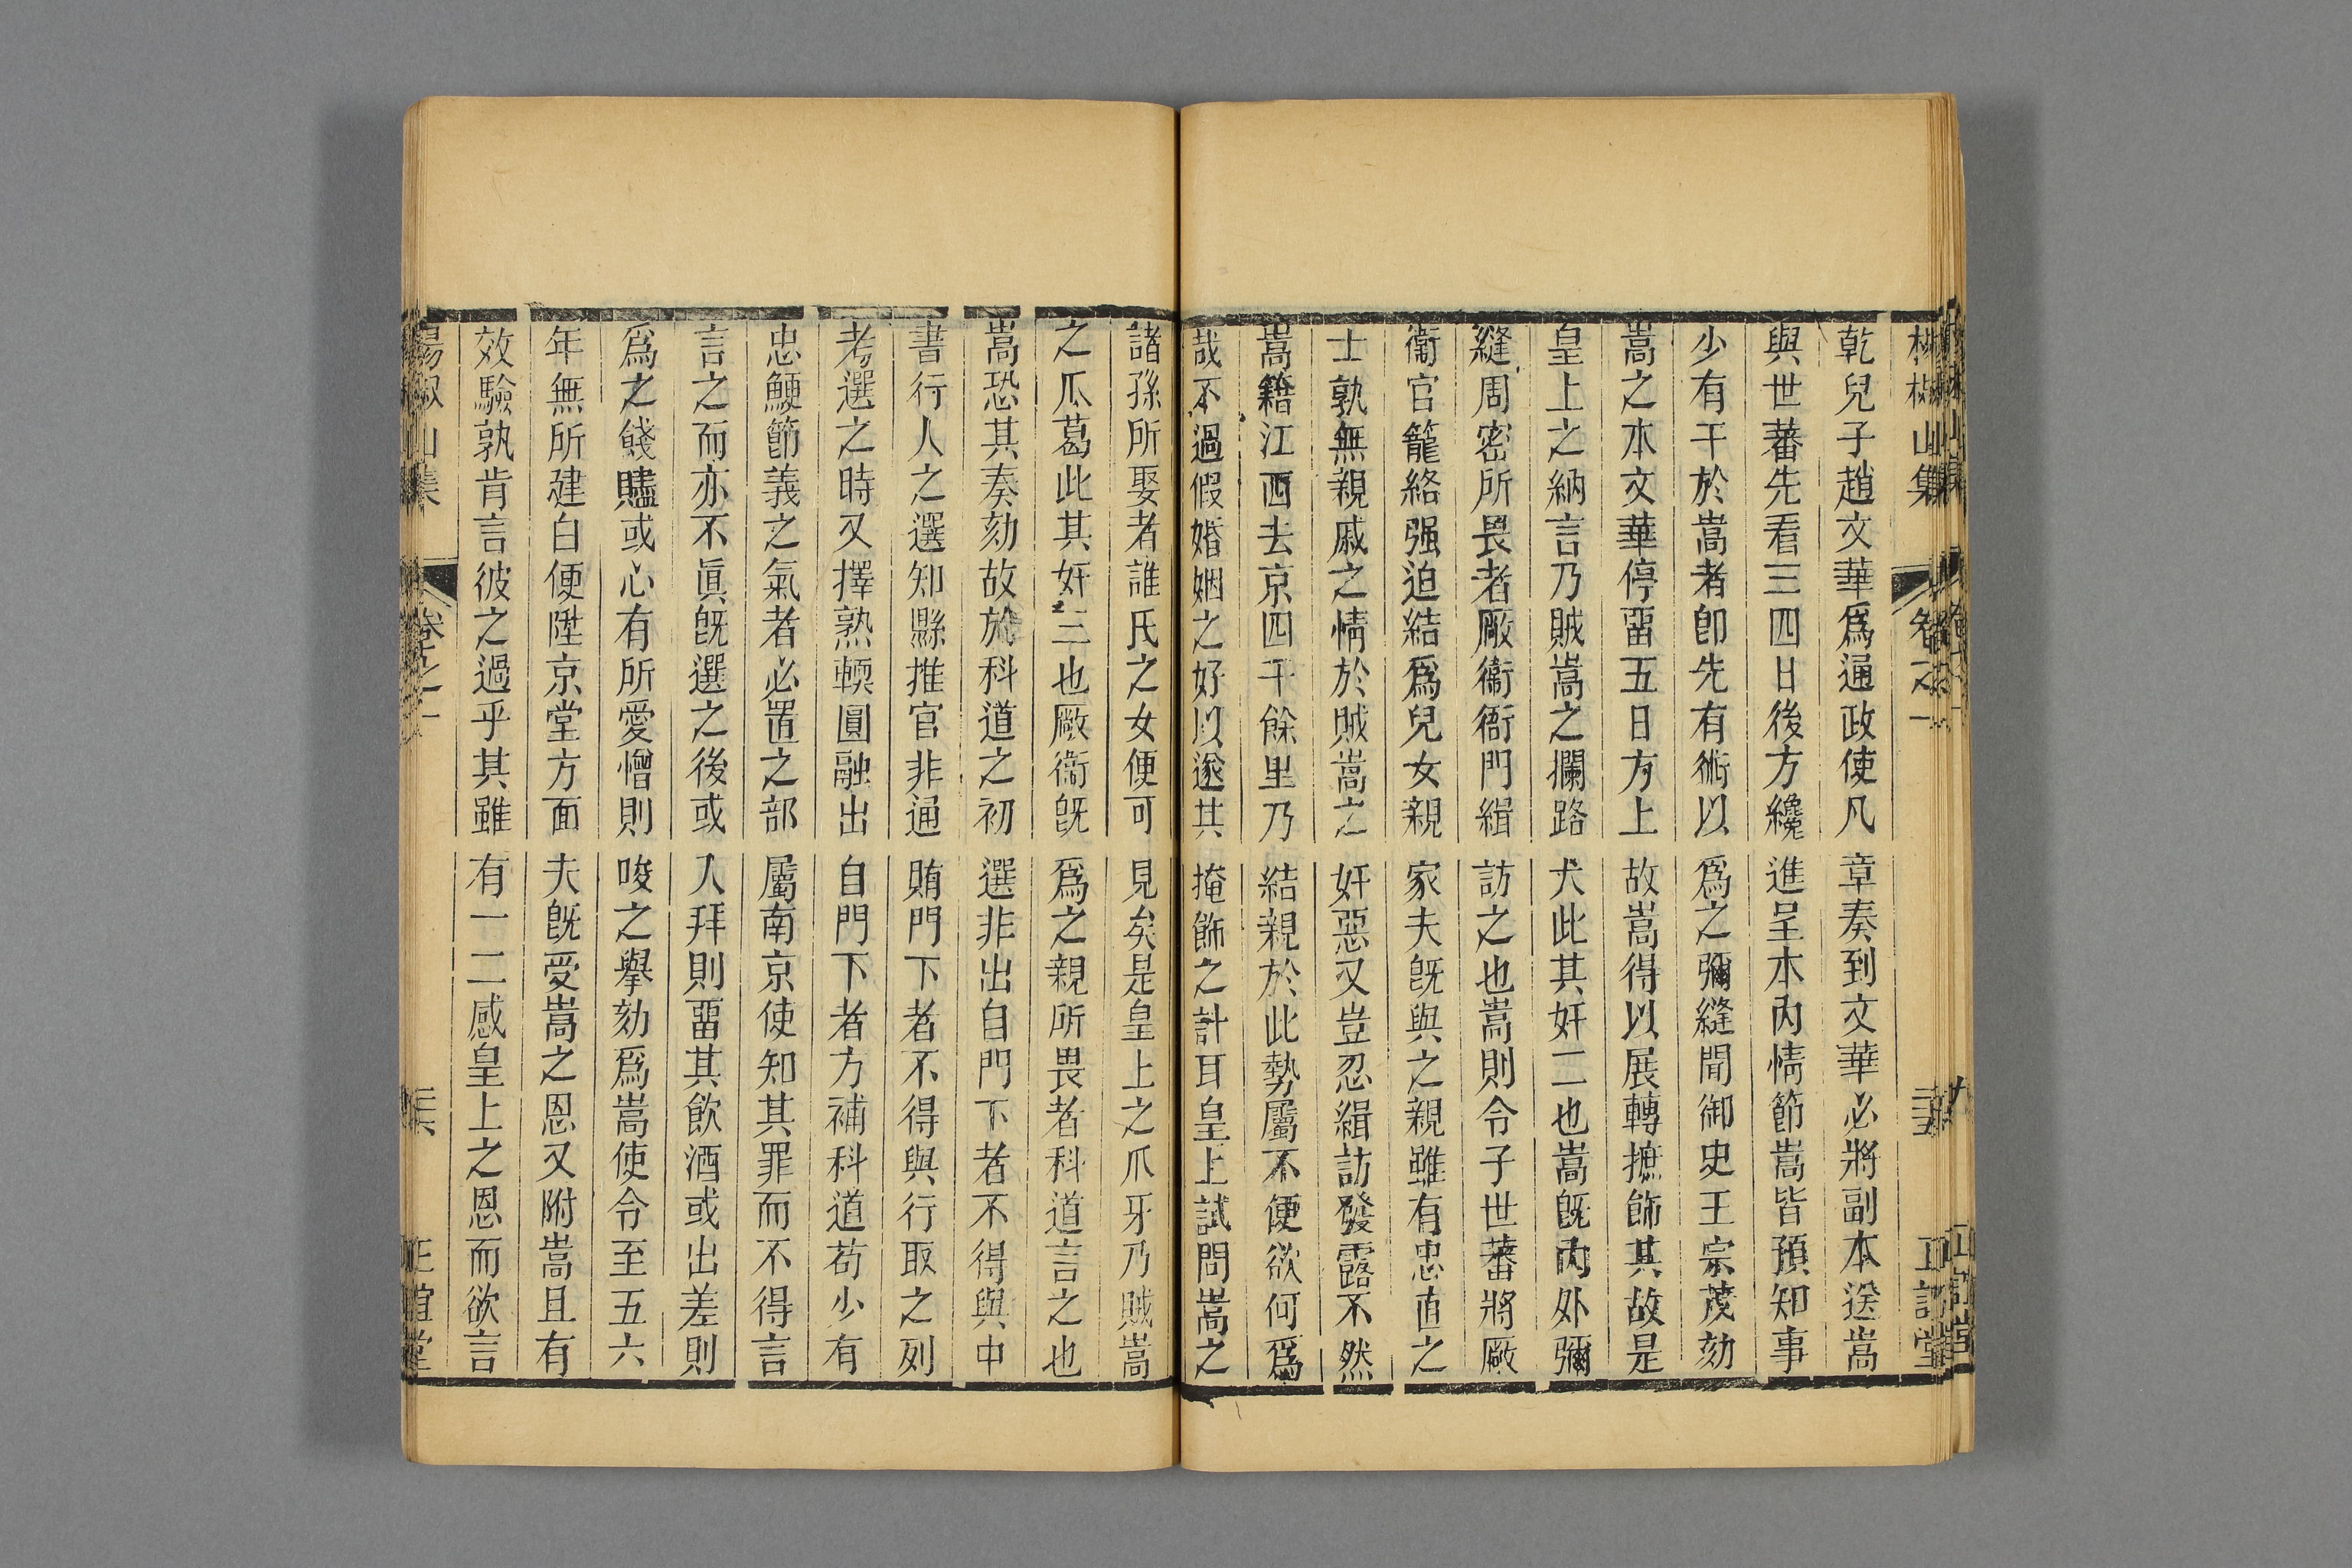 乾兒子趙文華爲通政使凡章奏到文華必將副本送嵩
與世蕃先看三四日後方纔進呈本內情節嵩皆預知事
少有干於嵩者卽先有術以爲之彌縫聞御史王宗茂劾
嵩之本文華停畱五日方上故嵩得以展轉摭飾其故是
皇上之納言乃賊嵩之攔路犬此其奸二也嵩旣內外彌
縫周密所畏者廠衞衙門緝訪之也嵩則令子世蕃將廠
衞官籠絡强迫結爲兒女親家夫旣與之親雖有忠直之
士孰無親戚之情於賊嵩之奸惡又豈忍緝訪發露不然
嵩籍江西去京四千餘里乃結親於此勢屬不便欲何爲
哉不過假婚姻之好以遂其掩飾之計耳皇上試問嵩之
諸孫所娶者誰氏之女便可見矣是皇上之爪牙乃賊嵩
之瓜葛此其奸三也廠衞旣爲之親所畏者科道言之也
嵩恐其奏劾故於科道之初選非出自門下者不得與中
書行人之選知縣推官非通賄門下者不得與行取之列
考選之時又擇熟輭圓融出自門下者方補科道苟少有
忠鯁節義之氣者必置之部屬南京使知其罪而不得言
言之而亦不眞旣選之後或入拜則畱其飲酒或出差則
爲之餞贐或心有所愛憎則唆之舉劾爲嵩使令至五六
年無所建白便陞京堂方面夫旣受嵩之恩又附嵩且有
效驗孰肯言彼之過乎其雖有一二感皇上之恩而欲言
椒山集 卷之一 正誼堂